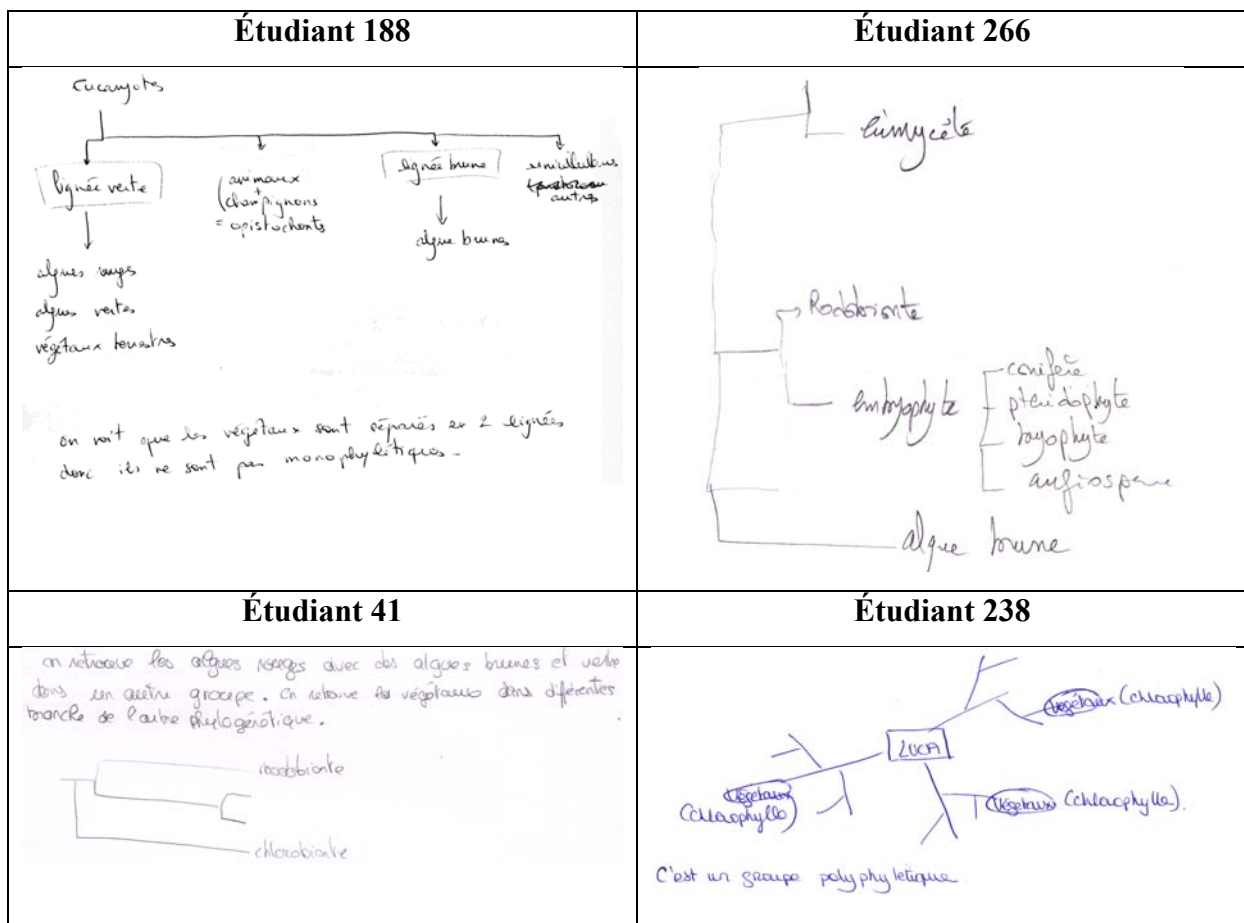 Étudiant 188
Eucaryotes
lignée verte
animaux
+
champignons
= opistochonts
lignée brune
unicellulaires
autres
algues rouges
algues vertes
végétaux terrestres
algue brunes
on voit que les végétaux sont séparés en 2 lignées
donc ils ne sont pas monophylétiques.
Étudiant 266
eumycète
Rodobionte
embryophyte
conifère
pteridophyte
bryophyte
angiosperme
algue brune
Étudiant 41
on retrouve les algues rouges avec des algues brunes et verte
dans un autre groupe. On retrouve les végétaux dans différentes
branche de l'arbre phylogénétique.
rhodobionte
chlorobionte
Étudiant 238
LUCA
végétaux (chlorophylle)
végétaux
(chlorophylle)
végétaux (chlorophylle).
C'est un groupe polyphyletique